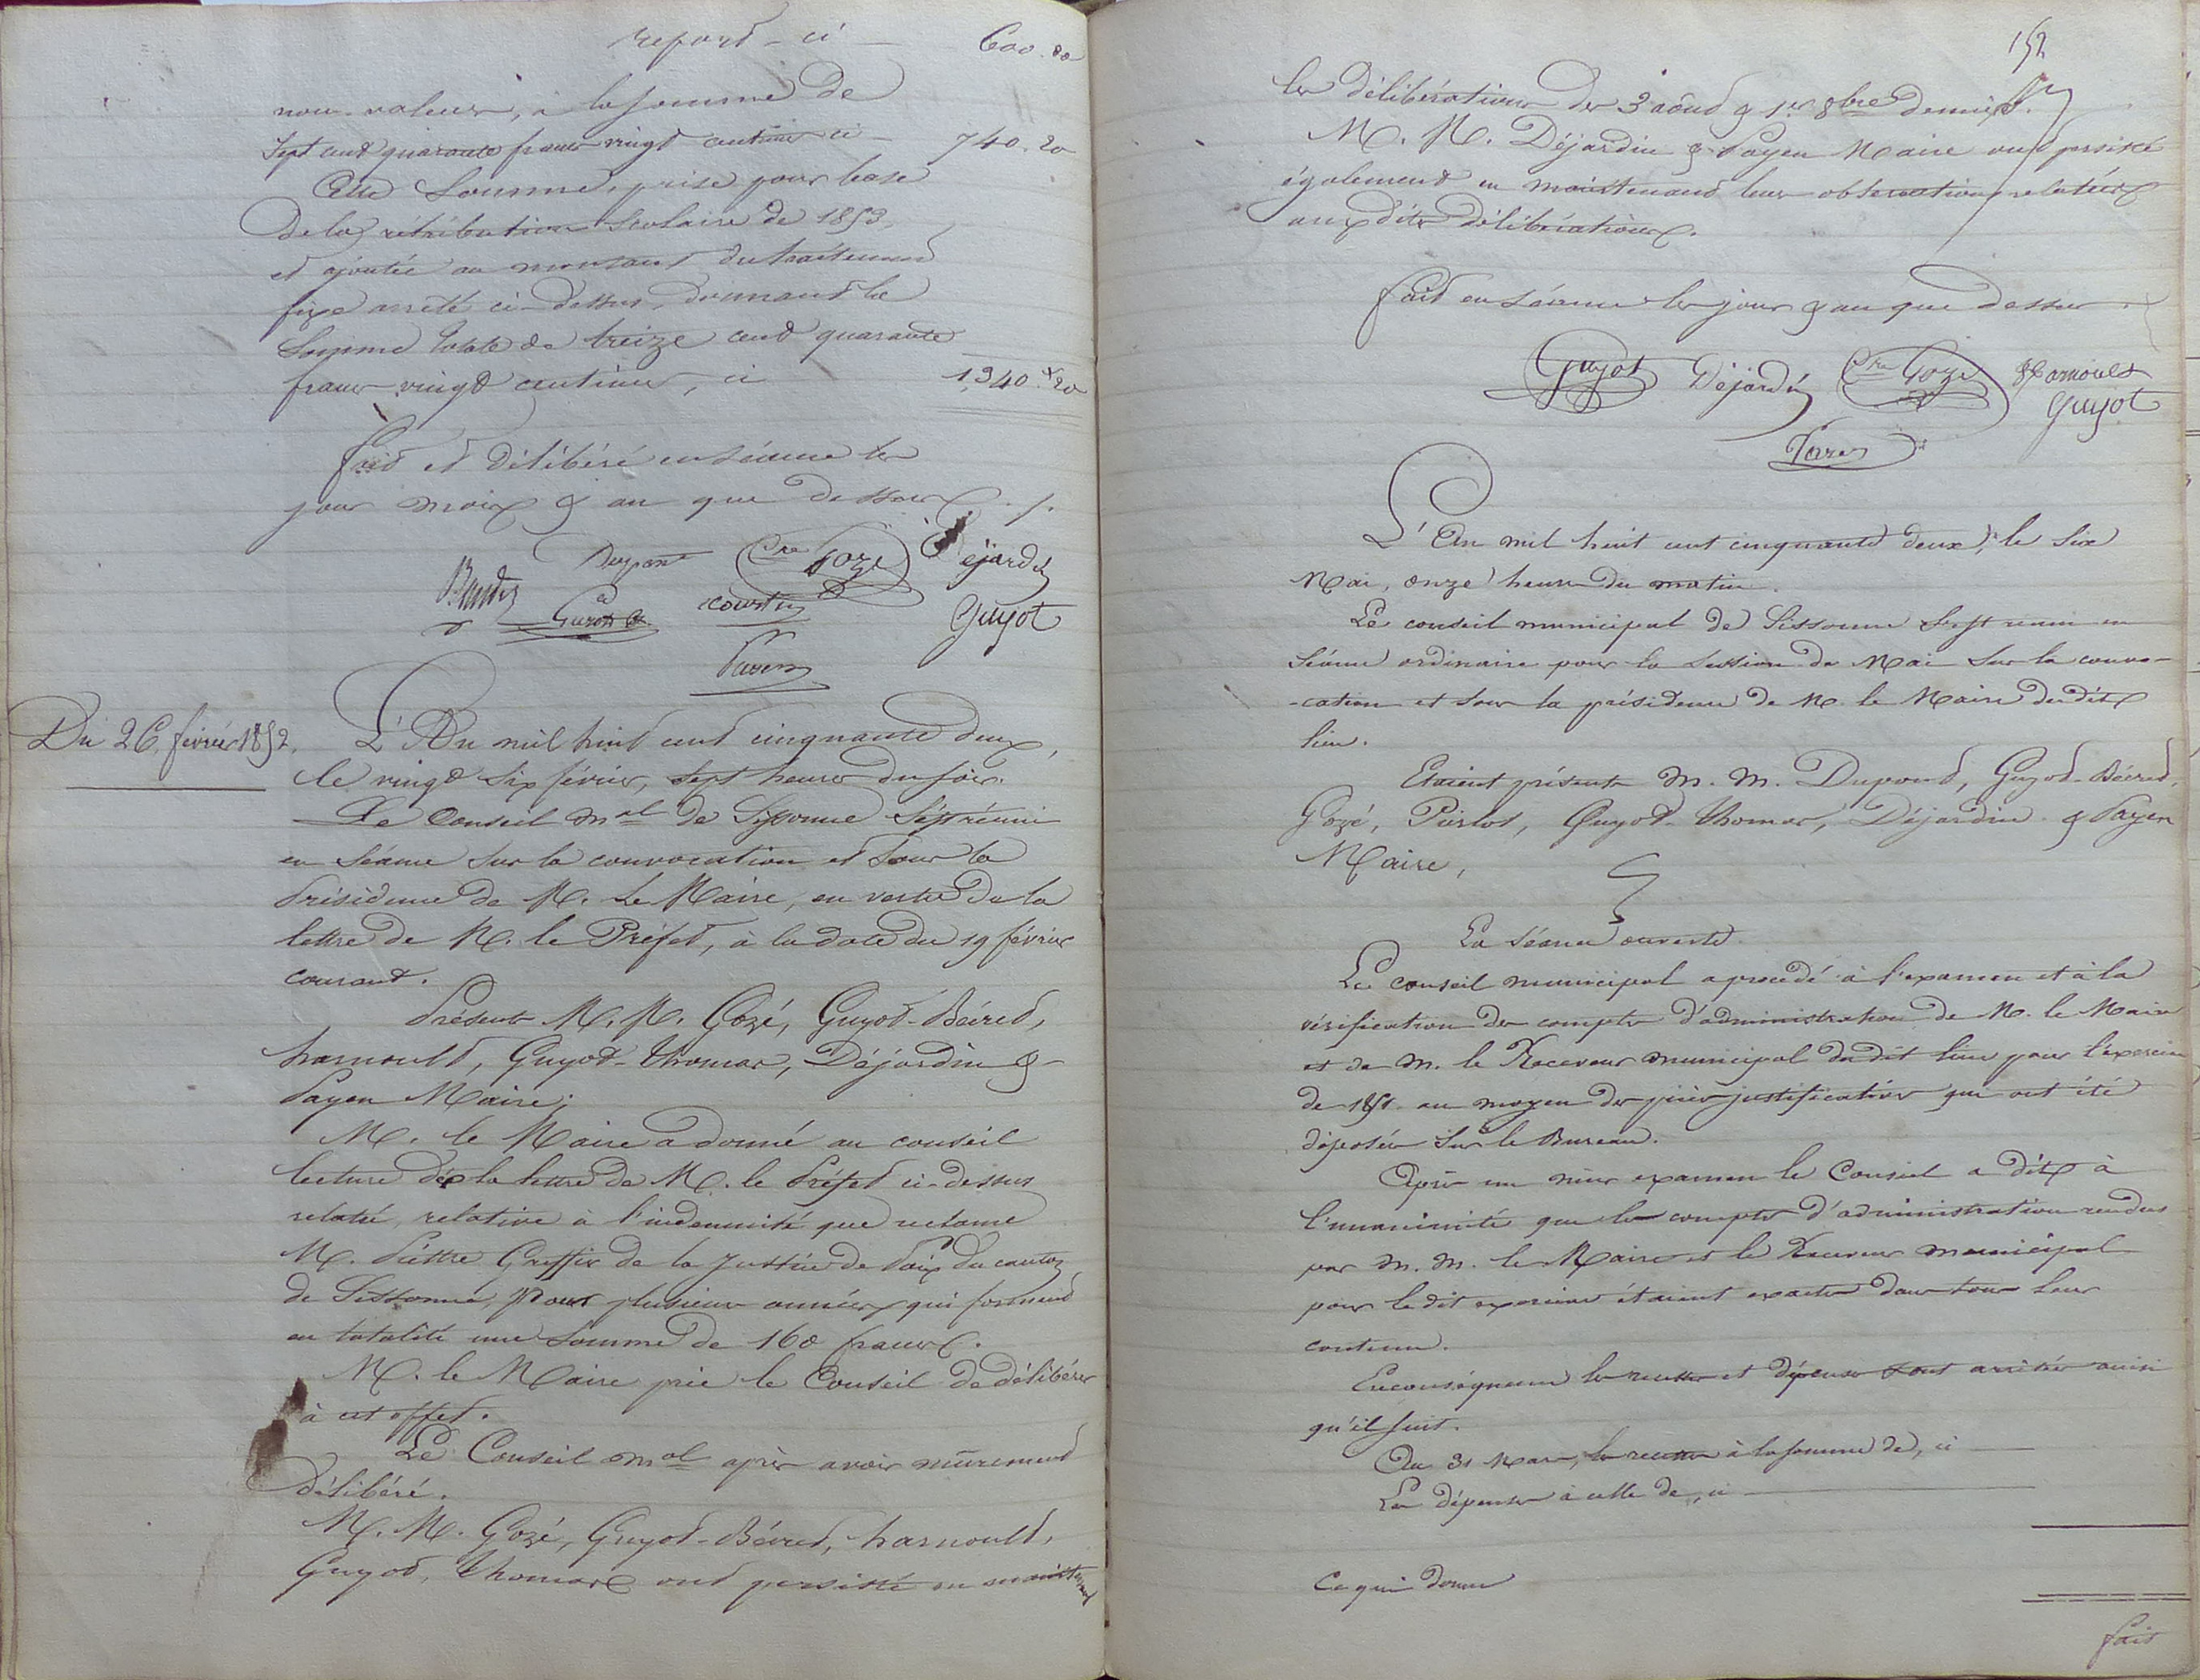 report - ci - 600.00
non-valeurs, à la somme de
sept cent quarante francs vingt centimes ci - 740.20
Cette Somme, prise pour base
de la rétribution Scolaire de 1853,
et ajoutée au montant du traitement
fixe arrêté ci-dessus, donnant la
Somme totale de treize cent quarante
francs vingt centimes, ci 1,340.20
fait et délibéré en séance les
jour mois & an que dessus ./.
Dupont Cre Gozé Déjardin
Courtin Guyot
Payen
Du 26 février 1852.
L'An mil huit cent cinquante deux,
le vingt six février, sept heures du soir.
Le Conseil mal de Sissonne s'est réuni
en Séance sur la convocation et sous la
Présidence de M. Le Maire, en vertu de la
lettre de M. le Préfet, à la date du 19 février
courant.
Présents M. M. Gozé, Guyot-Béired,
harnoult, Guyot-Thomas, Déjardin &
Payen Maire;
M. le Maire a donné au conseil
lecture de la lettre de M. le Préfet ci-dessus
relatée, relative à l'indemnité que réclame
M. Piettre Greffier de la Justice de Paix du canton
de Sissonne, pour plusieurs années qui forment
en totalité une somme de 160 francs.
M. le Maire prie le Conseil de délibérer
à cet effet.
Le Conseil mal après avoir mûrement
délibéré.
M. M. Gozé, Guyot-Béired, harnoult,
Guyot, Thomas ont persisté en maintenant
152
les délibérations des 3 août & 1er 8bre dernier.
M. M. Déjardin & Payen Maire ont persisté
également en maintenant leurs observations relatées
aux dites délibérations.
fait en séance les jour & an que dessus.
Guyot Déjardin Cre Gozé Harnoult
Guyot
Payen
L'An mil huit cent cinquante deux, le six
Mai, onze heures du matin.
Le conseil municipal de Sissonne s'est réuni en
séance ordinaire pour la session de Mai sur la convo-
-cation et sous la présidence de M. le Maire du dit
lieu.
Etaient présents M. M. Dupont, Guyot-Béired,
Gozé, Pierlot, Guyot-Thomas, Déjardin & Payen
Maire,
La séance ouverte.
Le conseil municipal a procédé à l'examen et à la
vérification des comptes d'administration de M. le Maire
et de M. le Receveur municipal du dit lieu pour l'exercice
de 1851 au moyen des pièces justificatives qui ont été
déposées sur le Bureau.
Après un mûr examen le Conseil a dit à
l'unanimité que les comptes d'administration rendus
par M. M. le Maire et le Receveur municipal
pour le dit exercice étaient exacts dans tous leur
contenu.
En conséquence les recettes et dépenses sont arrêtées ainsi
qu'il suit.
Au 31 Mars, les recettes à la somme de, ci
Les dépenses à celle de, ci
Ce qui donne
fait